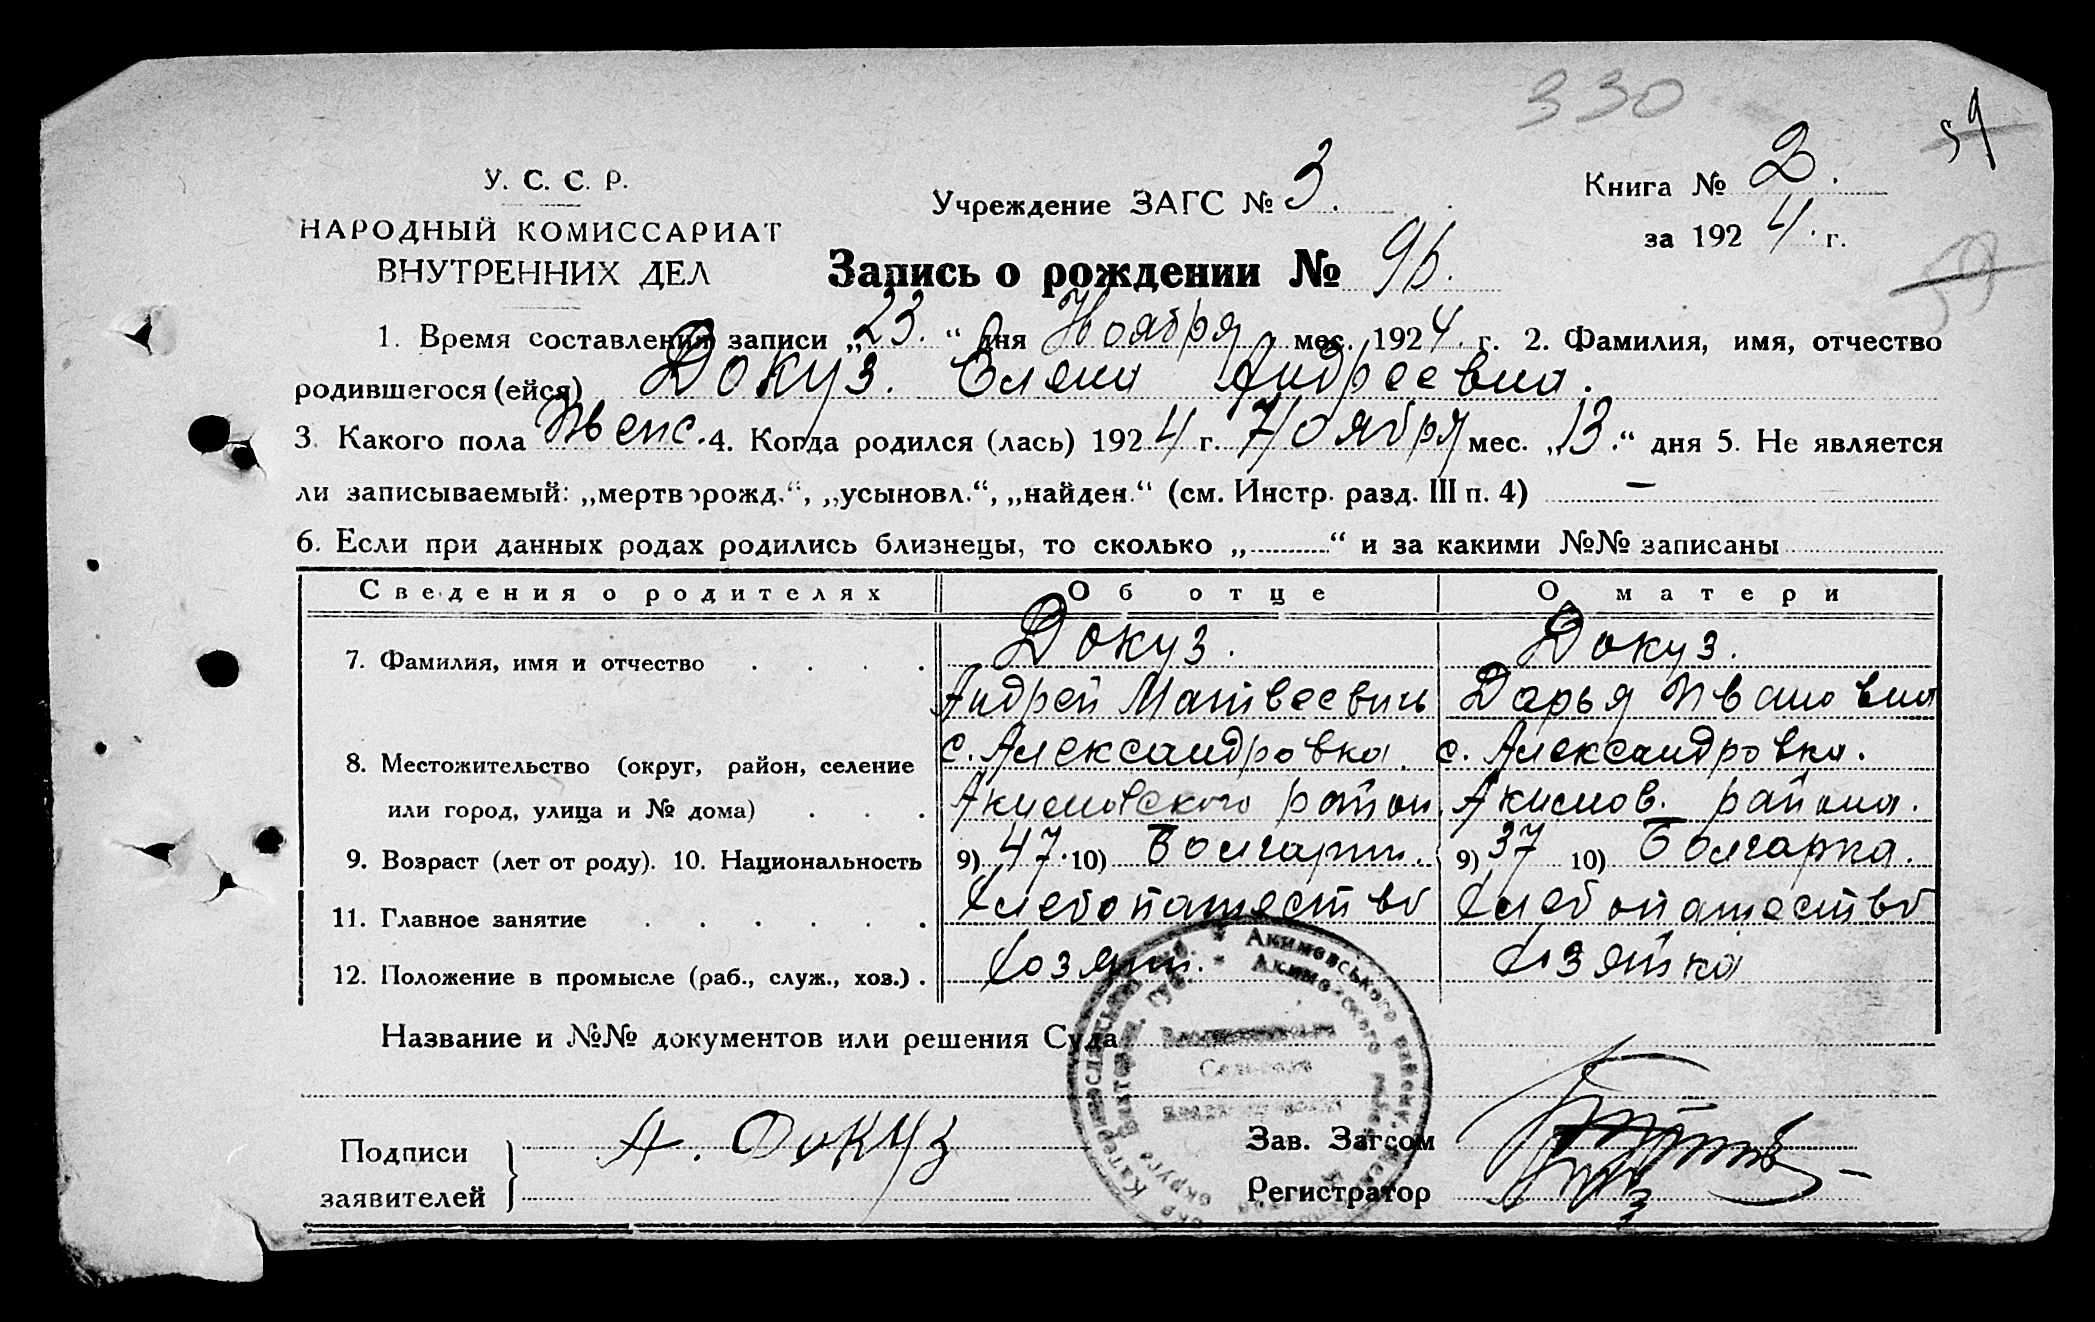 330
59
У. С. С. Р.
НАРОДНЫЙ КОМИССАРИАТ
ВНУТРЕННИХ ДЕЛ
Учреждение ЗАГС № 3.
Книга № 2.
за 1924. г.
59
Запись о рождении № 96.
1. Время составления записи „23.“ дня Ноября мес. 1924. г. 2. Фамилия, имя, отчество
родившегося (ейся) Докуз. Елена Андреевна.
3. Какого пола Женс. 4. Когда родился (лась) 1924 г. Ноября мес. „13.“ дня 5. Не является
ли записываемый: „мертворожд.“, „усыновл.“, „найден.“ (см. Инстр. разд. III п. 4) —
6. Если при данных родах родились близнецы, то сколько „...........“ и за какими №№ записаны
Сведения о родителях Об отце О матери
7. Фамилия, имя и отчество . . . . Докуз. Докуз.
Андрей Матвеевич Дарья Ивановна
с. Александровка. с. Александровка.
8. Местожительство (округ, район, селение
или город, улица и № дома) . . . Акимовского район Акимов. района.
9. Возраст (лет от роду). 10. Национальность 9) 47. 10) Болгарин. 9) 37 10) Болгарка.
11. Главное занятие . . . . . . Хлебопашество Хлебопашество
12. Положение в промысле (раб., служ., хоз.) . Хозяин. Хозяйка
Название и №№ документов или решения Суда
Акимовського району
Акимовского
Сельсова
Подписи
заявителей
А. Докуз
Зав. Загсом
Регистратор